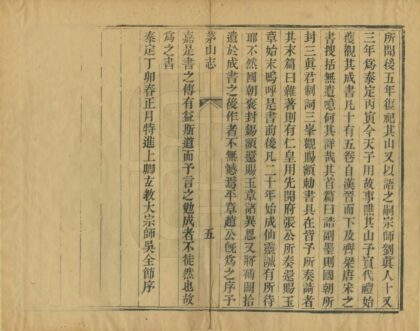 所聞後五年復祀其山又以語之嗣宗師劉眞人十又
三年爲泰定丙寅今天子用故事醮其山予實代禮始
獲觀其成書凡十有五卷自漢晉而下及齊梁唐宋之
書搜括無遺噫何其詳哉其首篇曰誥副墨則國朝所
封三眞君制詞三峯觀賜額勅書具在皆予所奏請者
其末篇曰雜著則有仁皇用先開府張公所奏還賜玉
章始末嗚呼是書前後凡二十年始成仙靈誠有所待
耶不然國朝褒封錫額還賜玉章諸異恩又將磨闕拾
遺於成書之後作者不無憾焉平章趙公旣爲之序予
茅山志
五
嘉是書之傳有益斯道而予言之勉成者不徒然也故
爲之書
泰定丁卯春正月特進上卿玄教大宗師吳全節序